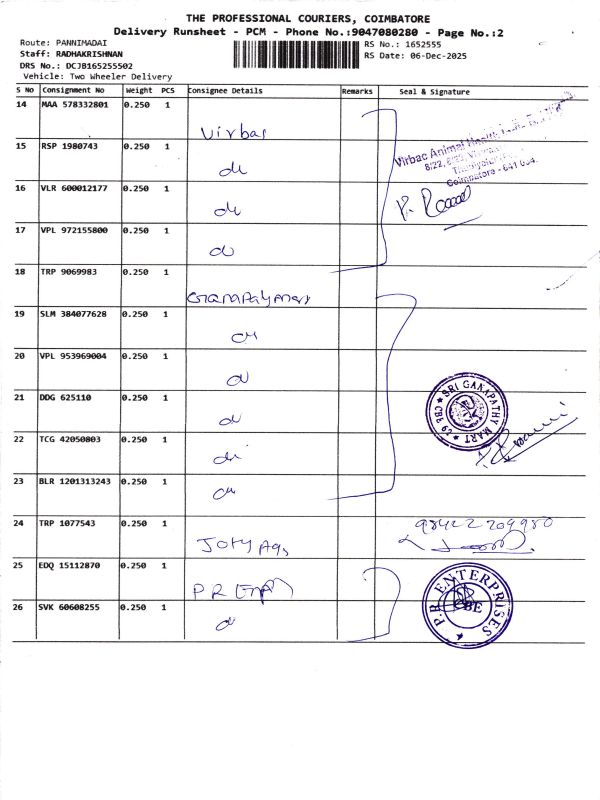 THE PROFESSIONAL COURIERS, COIMBATORE
Delivery Runsheet - PCM - Phone No.:9047080280 - Page No.:2
Route: PANNIMADAI
RS No.: 1652555
Staff: RADHAKRISHNAN
RS Date: 06-Dec-2025
DRS No.: DCJB165255502
Vehicle: Two Wheeler Delivery
S No Consignment No Weight PCS Consignee Details Remarks Seal & Signature
14 MAA 578332801 0.250 1 Virbac
Virbac Animal Health India
Coimbatore - 641 004.
15 RSP 1980743 0.250 1 do
16 VLR 600012177 0.250 1 do
17 VPL 972155800 0.250 1 do
18 TRP 9069983 0.250 1
19 SLM 384077628 0.250 1 do
20 VPL 953969004 0.250 1 do
21 DDG 625110 0.250 1 do
SRI GANAPATHY MART ★ CBE 29 ★
22 TCG 42050803 0.250 1 do
23 BLR 1201313243 0.250 1 do
24 TRP 1077543 0.250 1
98422 709980
25 EDQ 15112870 0.250 1 P R
P.R. ENTERPRISES ★ CBE
26 SVK 60608255 0.250 1 do